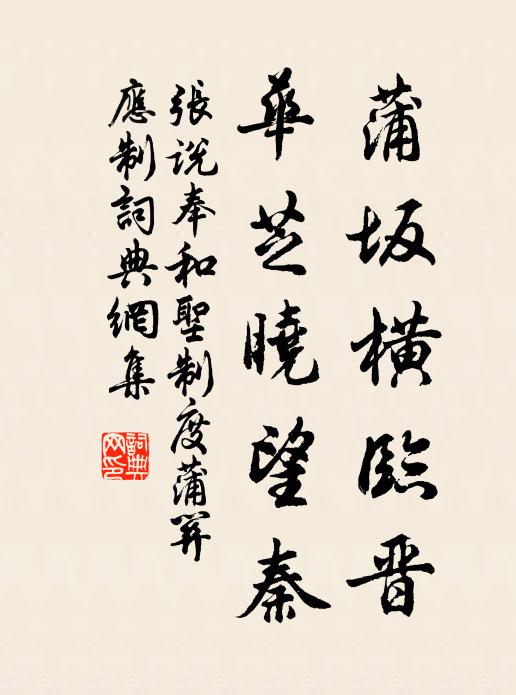 蒲坂橫臨晋
華芝曉望秦
張説奉和聖制度蒲關
應制詞典網集
詞典网印